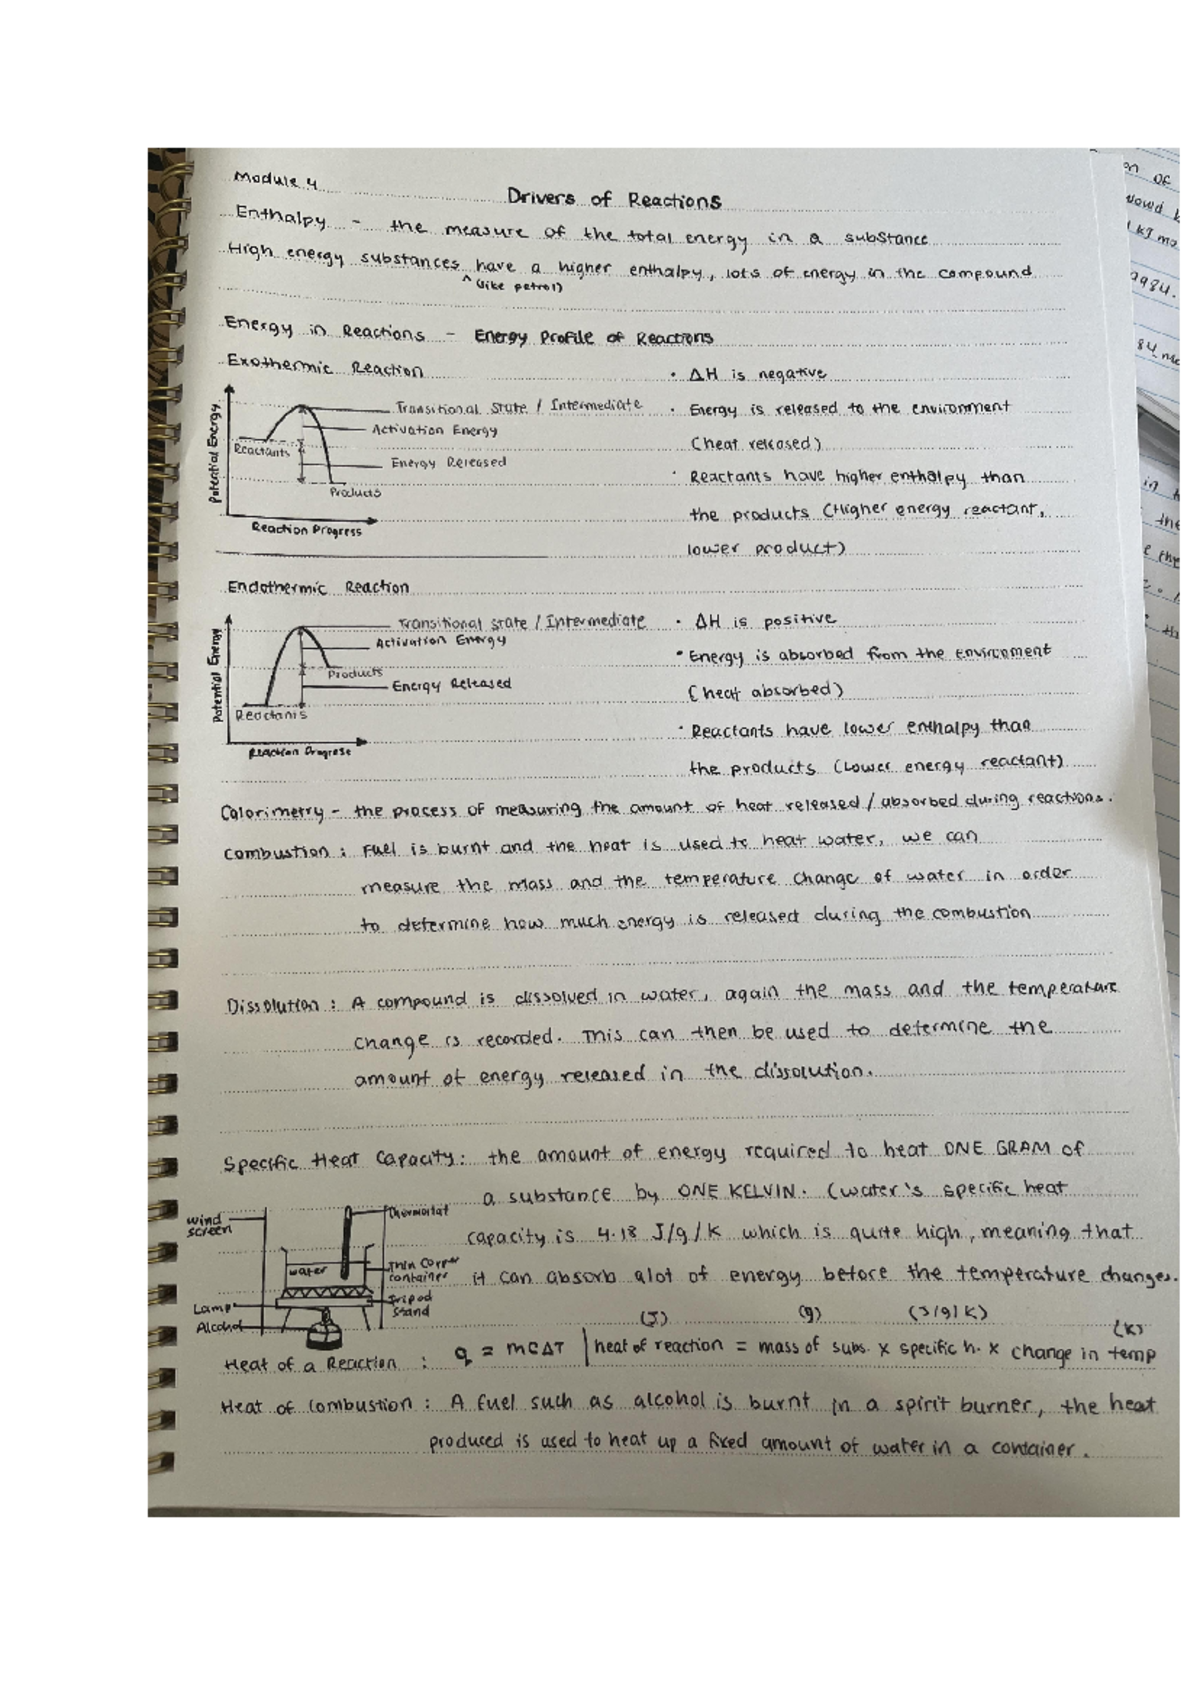 Module 4
Drivers of Reactions
Enthalpy - the measure of the total energy in a substance
High energy substances have a higher enthalpy, lots of energy in the compound
^ (like petrol)
Energy in Reactions - Energy Profile of Reactions
Exothermic Reaction
• ΔH is negative
Potential Energy
Transitional state / Intermediate
• Energy is released to the environment
Activation Energy
(heat released)
Reactants
Energy Released
• Reactants have higher enthalpy than
Products
the products (Higher energy reactant,
Reaction Progress
lower product)
Endothermic Reaction
Potential Energy
Transitional state / Intermediate
• ΔH is positive
Activation Energy
• Energy is absorbed from the environment
Products
Energy Released
(heat absorbed)
Reactants
• Reactants have lower enthalpy than
Reaction Progress
the products (Lower energy reactant)
Calorimetry - the process of measuring the amount of heat released / absorbed during reactions.
Combustion : Fuel is burnt and the heat is used to heat water, we can
measure the mass and the temperature change of water in order
to determine how much energy is released during the combustion
Dissolution : A compound is dissolved in water, again the mass and the temperature
change is recorded. This can then be used to determine the
amount of energy released in the dissolution.
Specific Heat Capacity : the amount of energy required to heat ONE GRAM of
a substance by ONE KELVIN. (water's specific heat
capacity is 4.18 J/g/K which is quite high, meaning that
it can absorb alot of energy before the temperature changes.
wind screen
thermostat
water
Thin
container
tripod stand
Lamp
Alcohol
(J) (g) (J/g/K) (K)
Heat of a Reaction : q = mcΔT | heat of reaction = mass of subs. x specific h. x change in temp
Heat of Combustion : A fuel such as alcohol is burnt in a spirit burner, the heat
produced is used to heat up a fixed amount of water in a container.